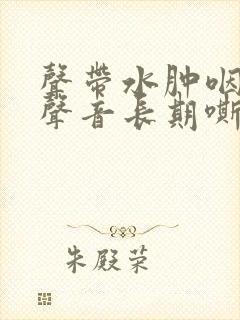 聲帶水肿咽
聲音長期嘶
朱殿荣